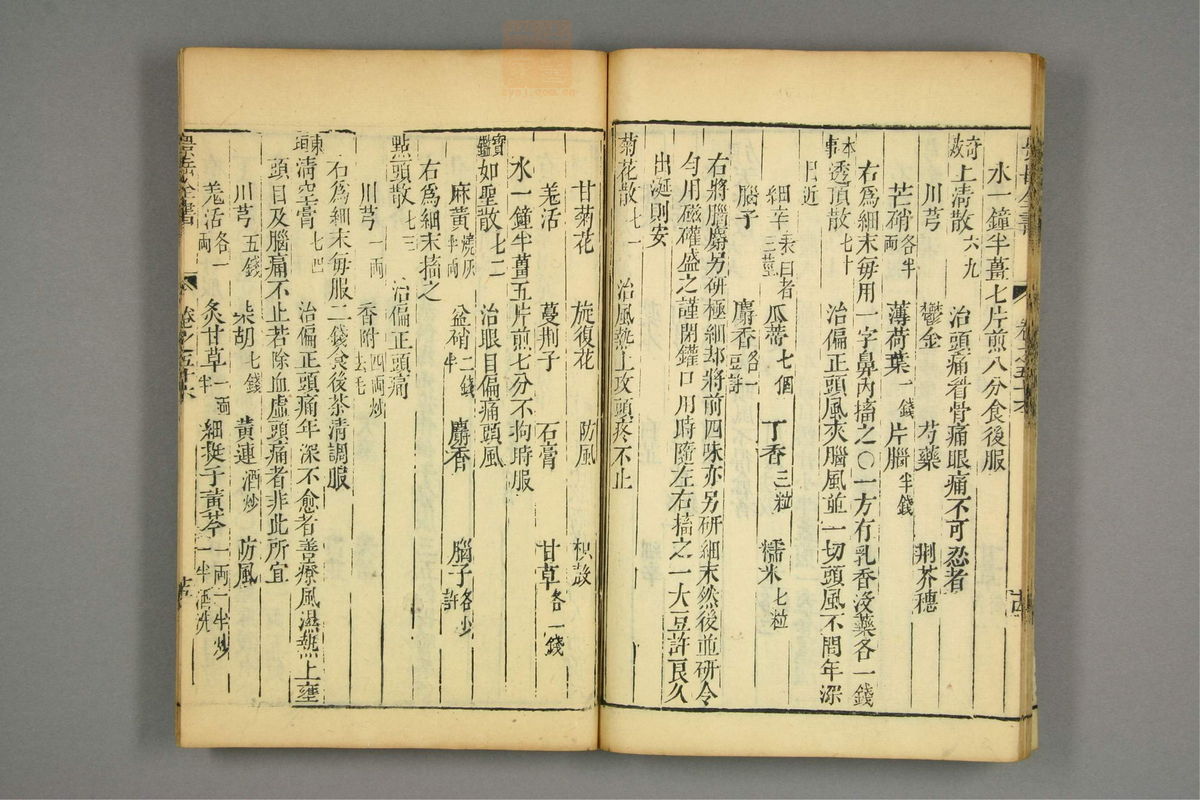 水一鐘半薑七片煎八分食後服
奇效
上清散六九 治頭痛眉骨痛眼痛不可忍者
川芎 鬱金 芍藥 荆芥穗
芒硝各半兩 薄荷葉一錢 片腦半錢
右爲細末每用一字鼻內搐之〇一方有乳香沒藥各一錢
本事
透頂散七十 治偏正頭風夾腦風並一切頭風不問年深
日近
細辛表白者三莖 瓜蒂七個 丁香三粒 糯米七粒
腦子 麝香各一豆許
右將腦麝另研極細却將前四味亦另研細末然後並研令
勻用磁礶盛之謹閉礶口用時隨左右搐之一大豆許良久
出涎則安
菊花散七一 治風熱上攻頭疼不止
甘菊花 旋復花 防風 枳殼
羌活 蔓荆子 石膏 甘草各一錢
水一鐘半薑五片煎七分不拘時服
寶鑑
如聖散七二 治眼目偏痛頭風
麻黃燒灰半兩 盆硝二錢半 麝香 腦子各少許
右爲細末搐之
點頭散七三 治偏正頭痛
川芎一兩 香附四兩炒去毛
右爲細末每服二錢食後茶清調服
東垣
清空膏七四 治偏正頭痛年深不愈者善療風濕熱上壅
頭目及腦痛不止若除血虛頭痛者非此所宜
川芎五錢 柴胡七錢 黃連酒炒 防風
羌活各一兩 炙甘草一兩半 細挺子黃芩一兩一半炒一半酒洗
景岳全書